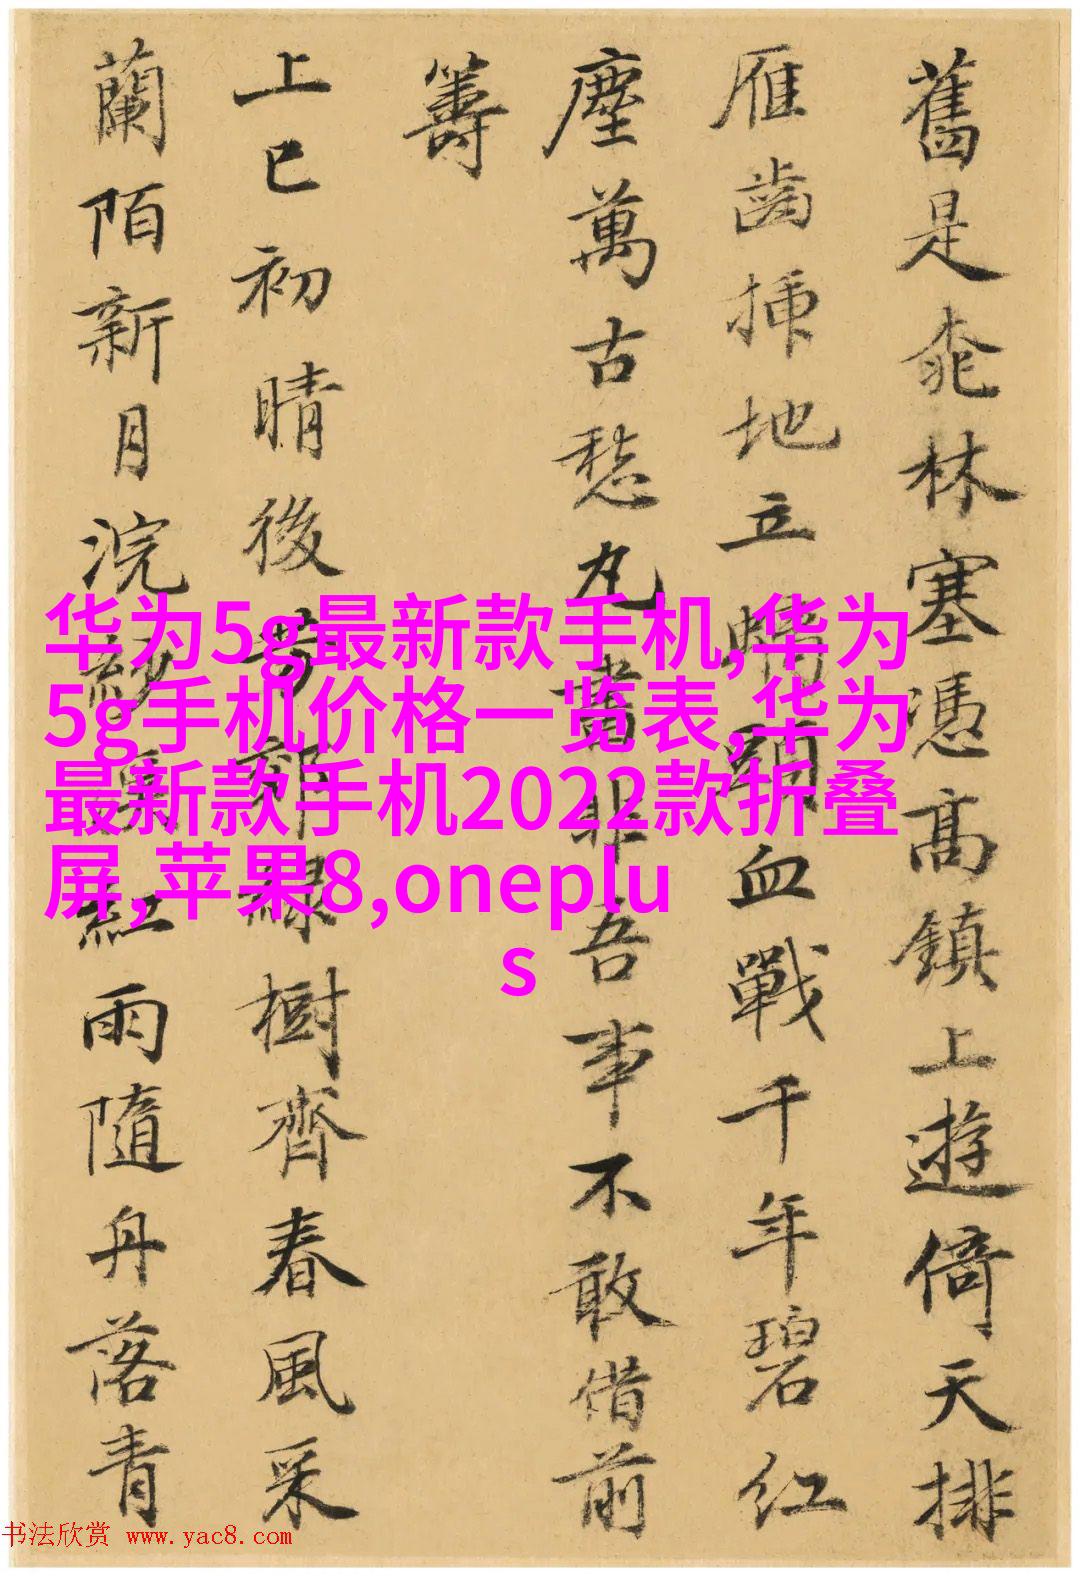 舊是桃林塞憑高鎮上遊倚天排
雁齒插地立螭頭血戰千年碧紅
塵萬古愁丸書非吾事不敢借前
籌
上巳初晴後芳郊綠樹齊春風采
蘭陌新月浣紗溪紅雨隨舟落青
华为5g最新款手机,华为
5g手机价格一览表,华为
最新款手机2022款折叠
屏,苹果8,oneplu
s
书法欣赏 www.yac8.com